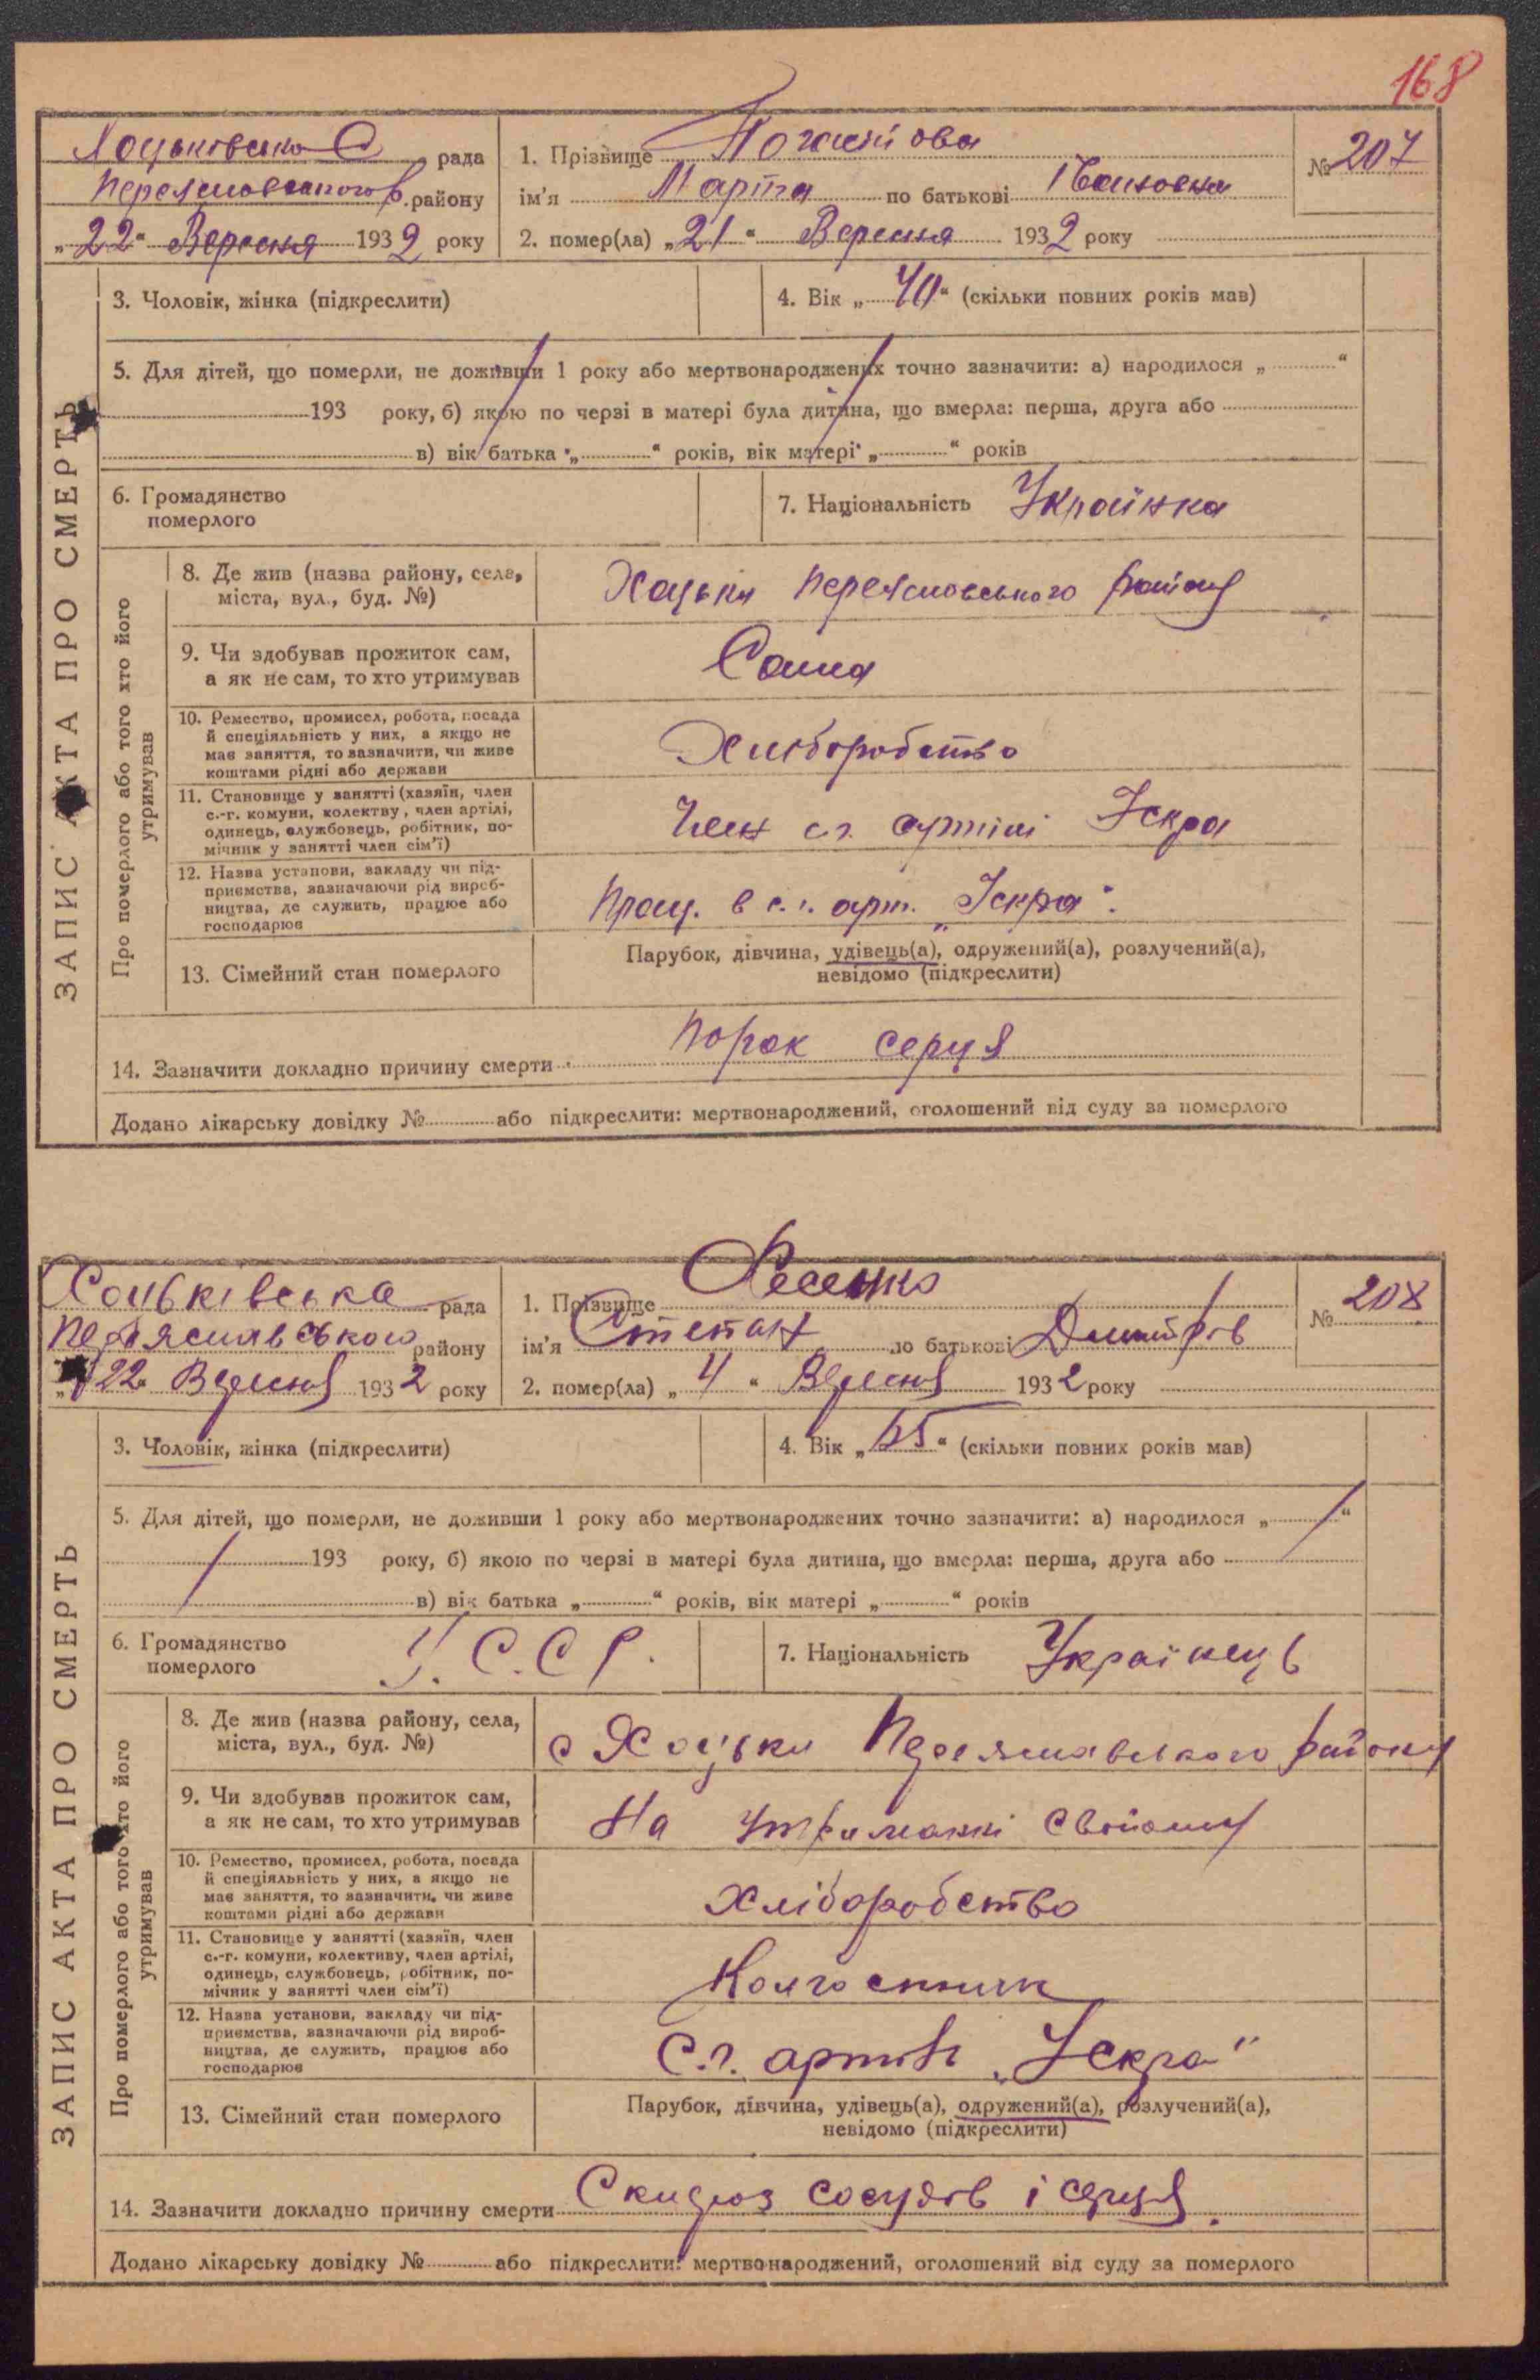 168
Хоцьковська С рада
Переяславського р. району
„22“ Вересня 1932 року
1. Прізвище
ім'я Марта по батькові Івановна
2. помер(ла) „21“ Вересня 1932 року
№ 207
ЗАПИС АКТА ПРО СМЕРТЬ
3. Чоловік, жінка (підкреслити)
4. Вік „40“ (скільки повних років мав)
5. Для дітей, що померли, не доживши 1 року або мертвонароджених точно зазначити: а) народилося „ “
193 року, б) якою по черзі в матері була дитина, що вмерла: перша, друга або
в) вік батька „ “ років, вік матері „ “ років
6. Громадянство
померлого
7. Національність Українка
Про померлого або того хто його
утримував
8. Де жив (назва району, села,
міста, вул., буд. №)
Хацьки Переяславського району
9. Чи здобував прожиток сам,
а як не сам, то хто утримував
Сама
10. Ремество, промисел, робота, посада
й спеціяльність у них, а якщо не
має заняття, то зазначити, чи живе
коштами рідні або держави
Хліборобство
11. Становище у занятті (хазяїн, член
с.-г. комуни, колектву, член артілі,
одинець, службовець, робітник, по-
мічник у занятті член сім'ї)
Член с.г. артілі Іскра
12. Назва установи, закладу чи під-
приємства, зазначаючи рід вироб-
ництва, де служить, працює або
господарює
Прац. в с.г. арт. „Іскра“.
13. Сімейний стан померлого
Парубок, дівчина, удівець(а), одружений(а), розлучений(а),
невідомо (підкреслити)
14. Зазначити докладно причину смерти Порок серця
Додано лікарську довідку № або підкреслити: мертвонароджений, оголошений від суду за померлого
Хоцьківська рада
Переяславського району
„22“ Вересня 1932 року
1. Прізвище Фесенко
ім'я Степан по батькові Дмитров
2. помер(ла) „4“ Вересня 1932 року
№ 208
ЗАПИС АКТА ПРО СМЕРТЬ
3. Чоловік, жінка (підкреслити)
4. Вік „ “ (скільки повних років мав)
5. Для дітей, що померли, не доживши 1 року або мертвонароджених точно зазначити: а) народилося „ “
193 року, б) якою по черзі в матері була дитина, що вмерла: перша, друга або
в) вік батька „ “ років, вік матері „ “ років
6. Громадянство
померлого
У.С.С.Р.
7. Національність Українець
Про померлого або того хто його
утримував
8. Де жив (назва району, села,
міста, вул., буд. №)
с Хоцьки Переяславського району
9. Чи здобував прожиток сам,
а як не сам, то хто утримував
На утриманні своїому
10. Ремество, промисел, робота, посада
й спеціяльність у них, а якщо не
має заняття, то зазначити, чи живе
коштами рідні або держави
Хліборобство
11. Становище у занятті (хазяїн, член
с.-г. комуни, колективу, член артілі,
одинець, службовець, робітник, по-
мічник у занятті член сім'ї)
Колгоспник
12. Назва установи, закладу чи під-
приємства, зазначаючи рід вироб-
ництва, де служить, працює або
господарює
С.г. артіль „Іскра“
13. Сімейний стан померлого
Парубок, дівчина, удівець(а), одружений(а), розлучений(а),
невідомо (підкреслити)
14. Зазначити докладно причину смерти сосудов і серця.
Додано лікарську довідку № або підкреслити: мертвонароджений, оголошений від суду за померлого